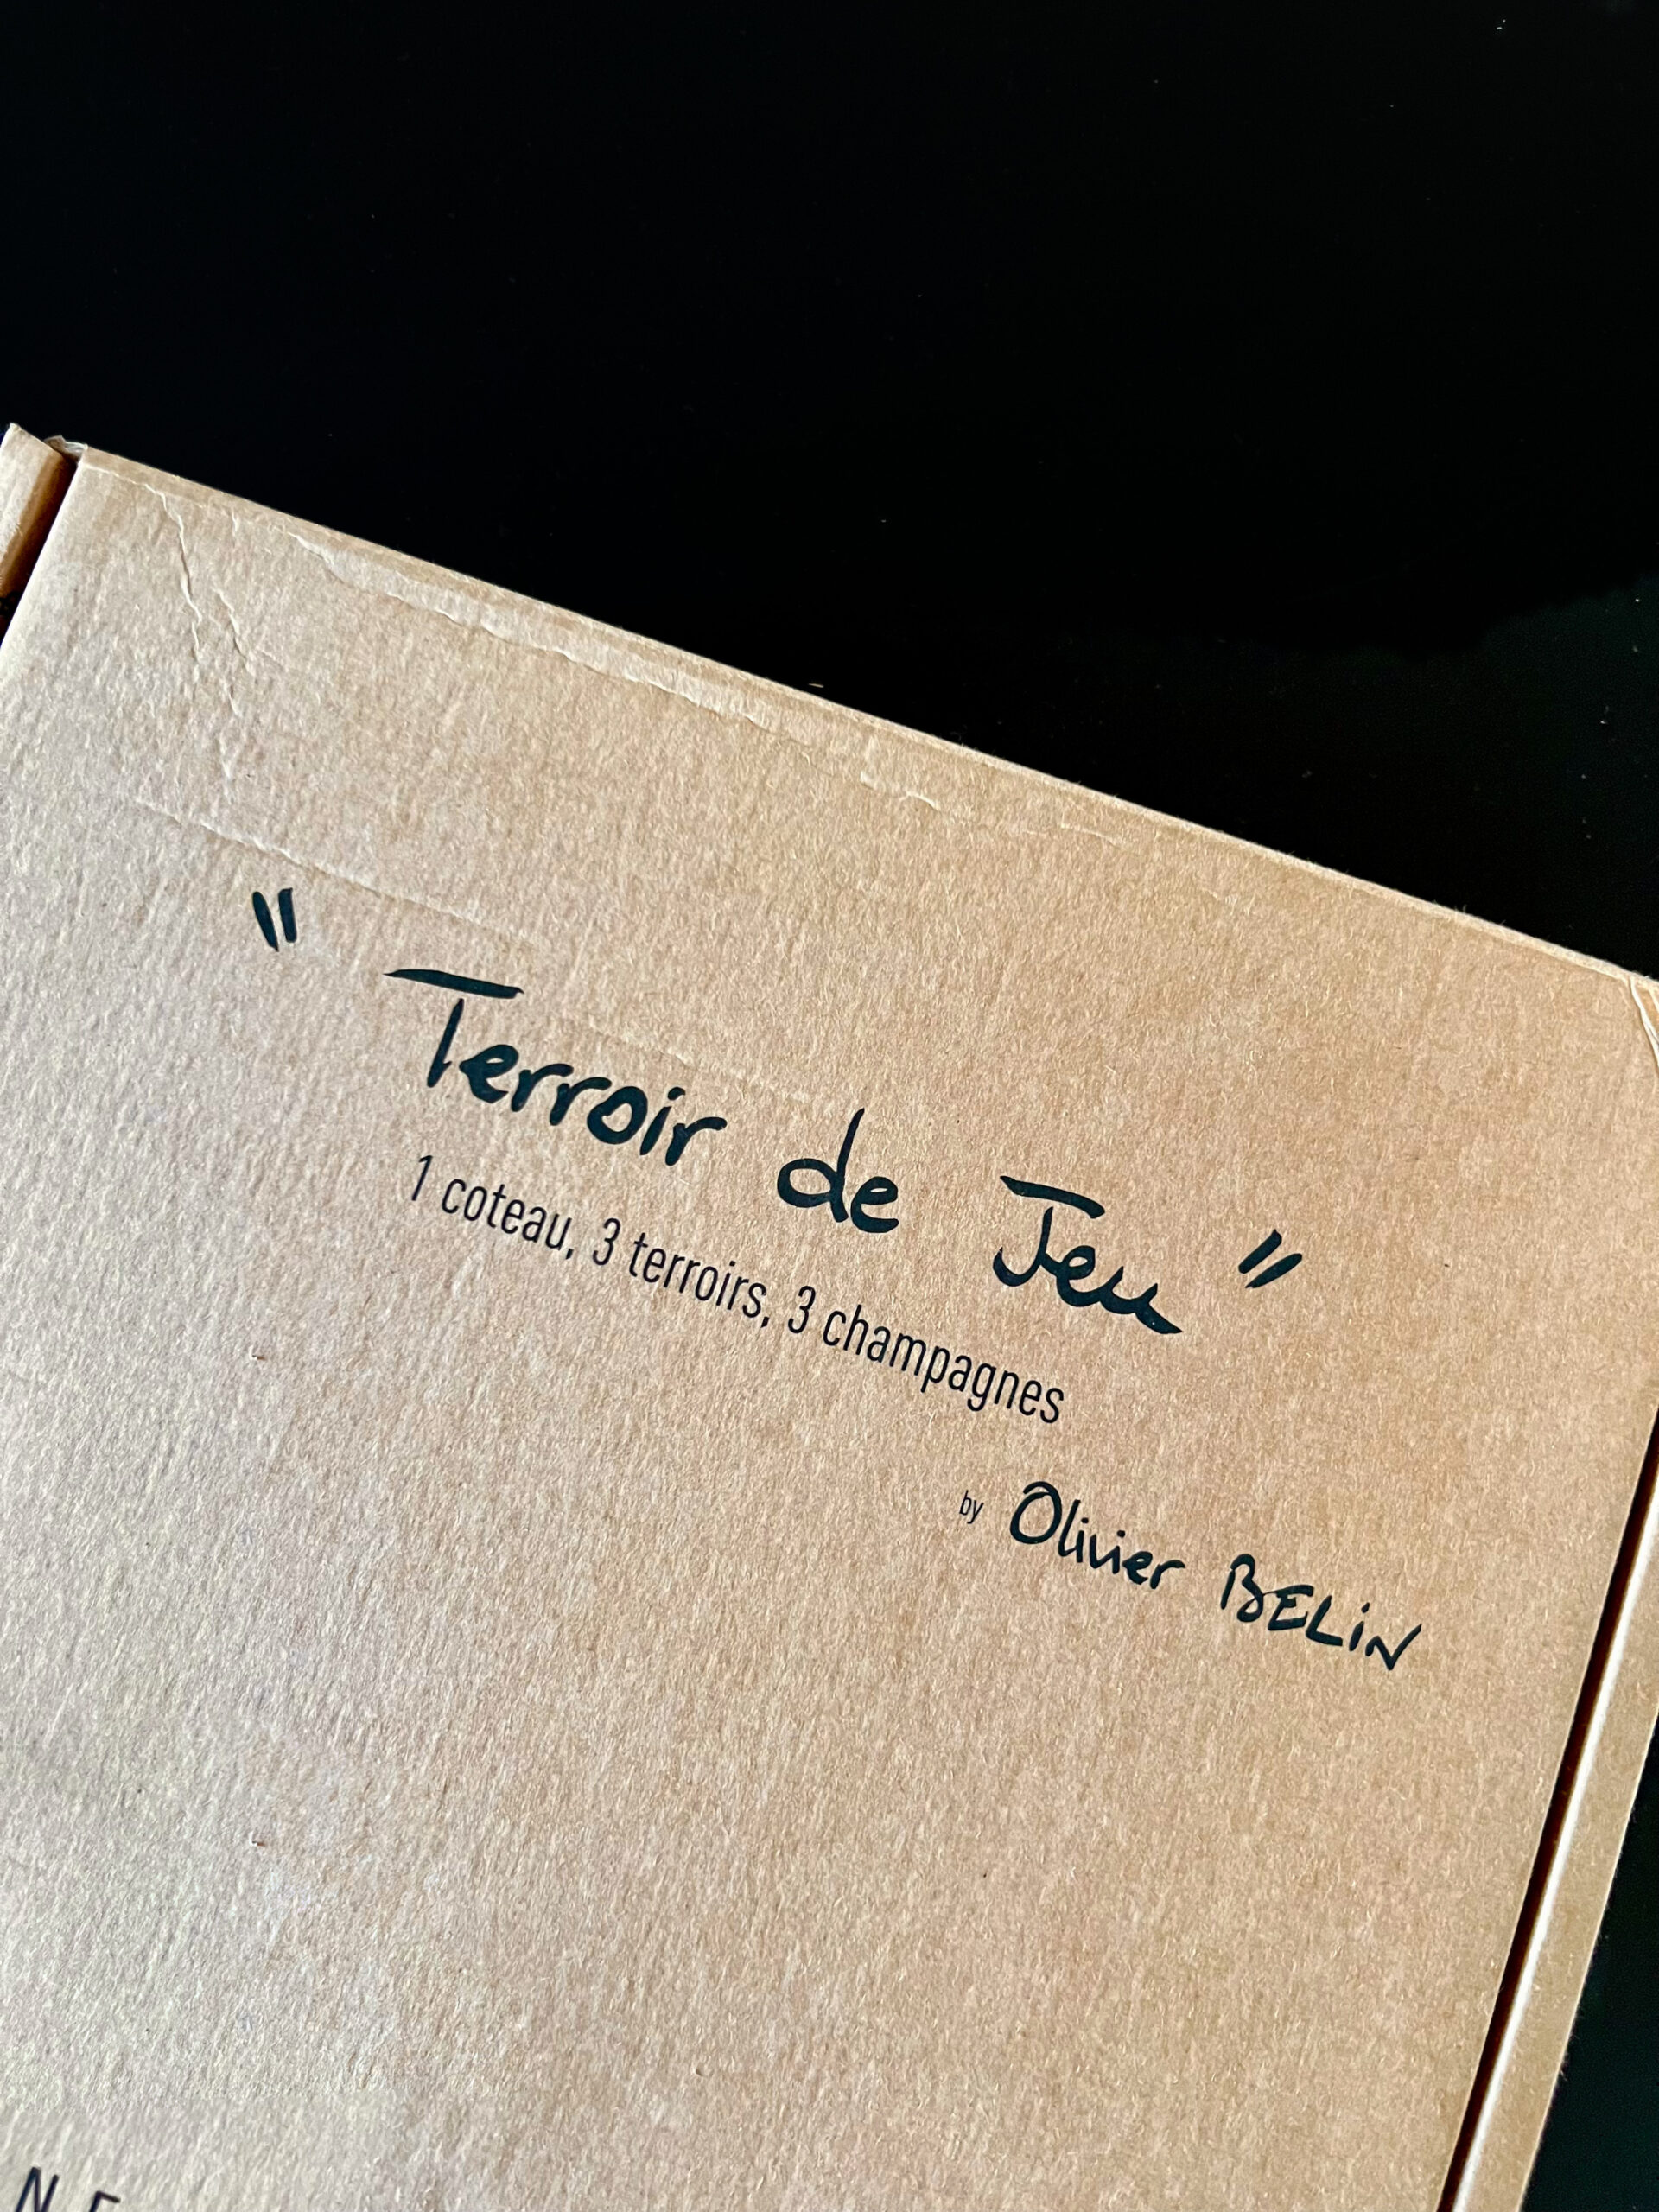 " Terroir de Jeu "
1 coteau, 3 terroirs, 3 champagnes
by Olivier BELiN
NE